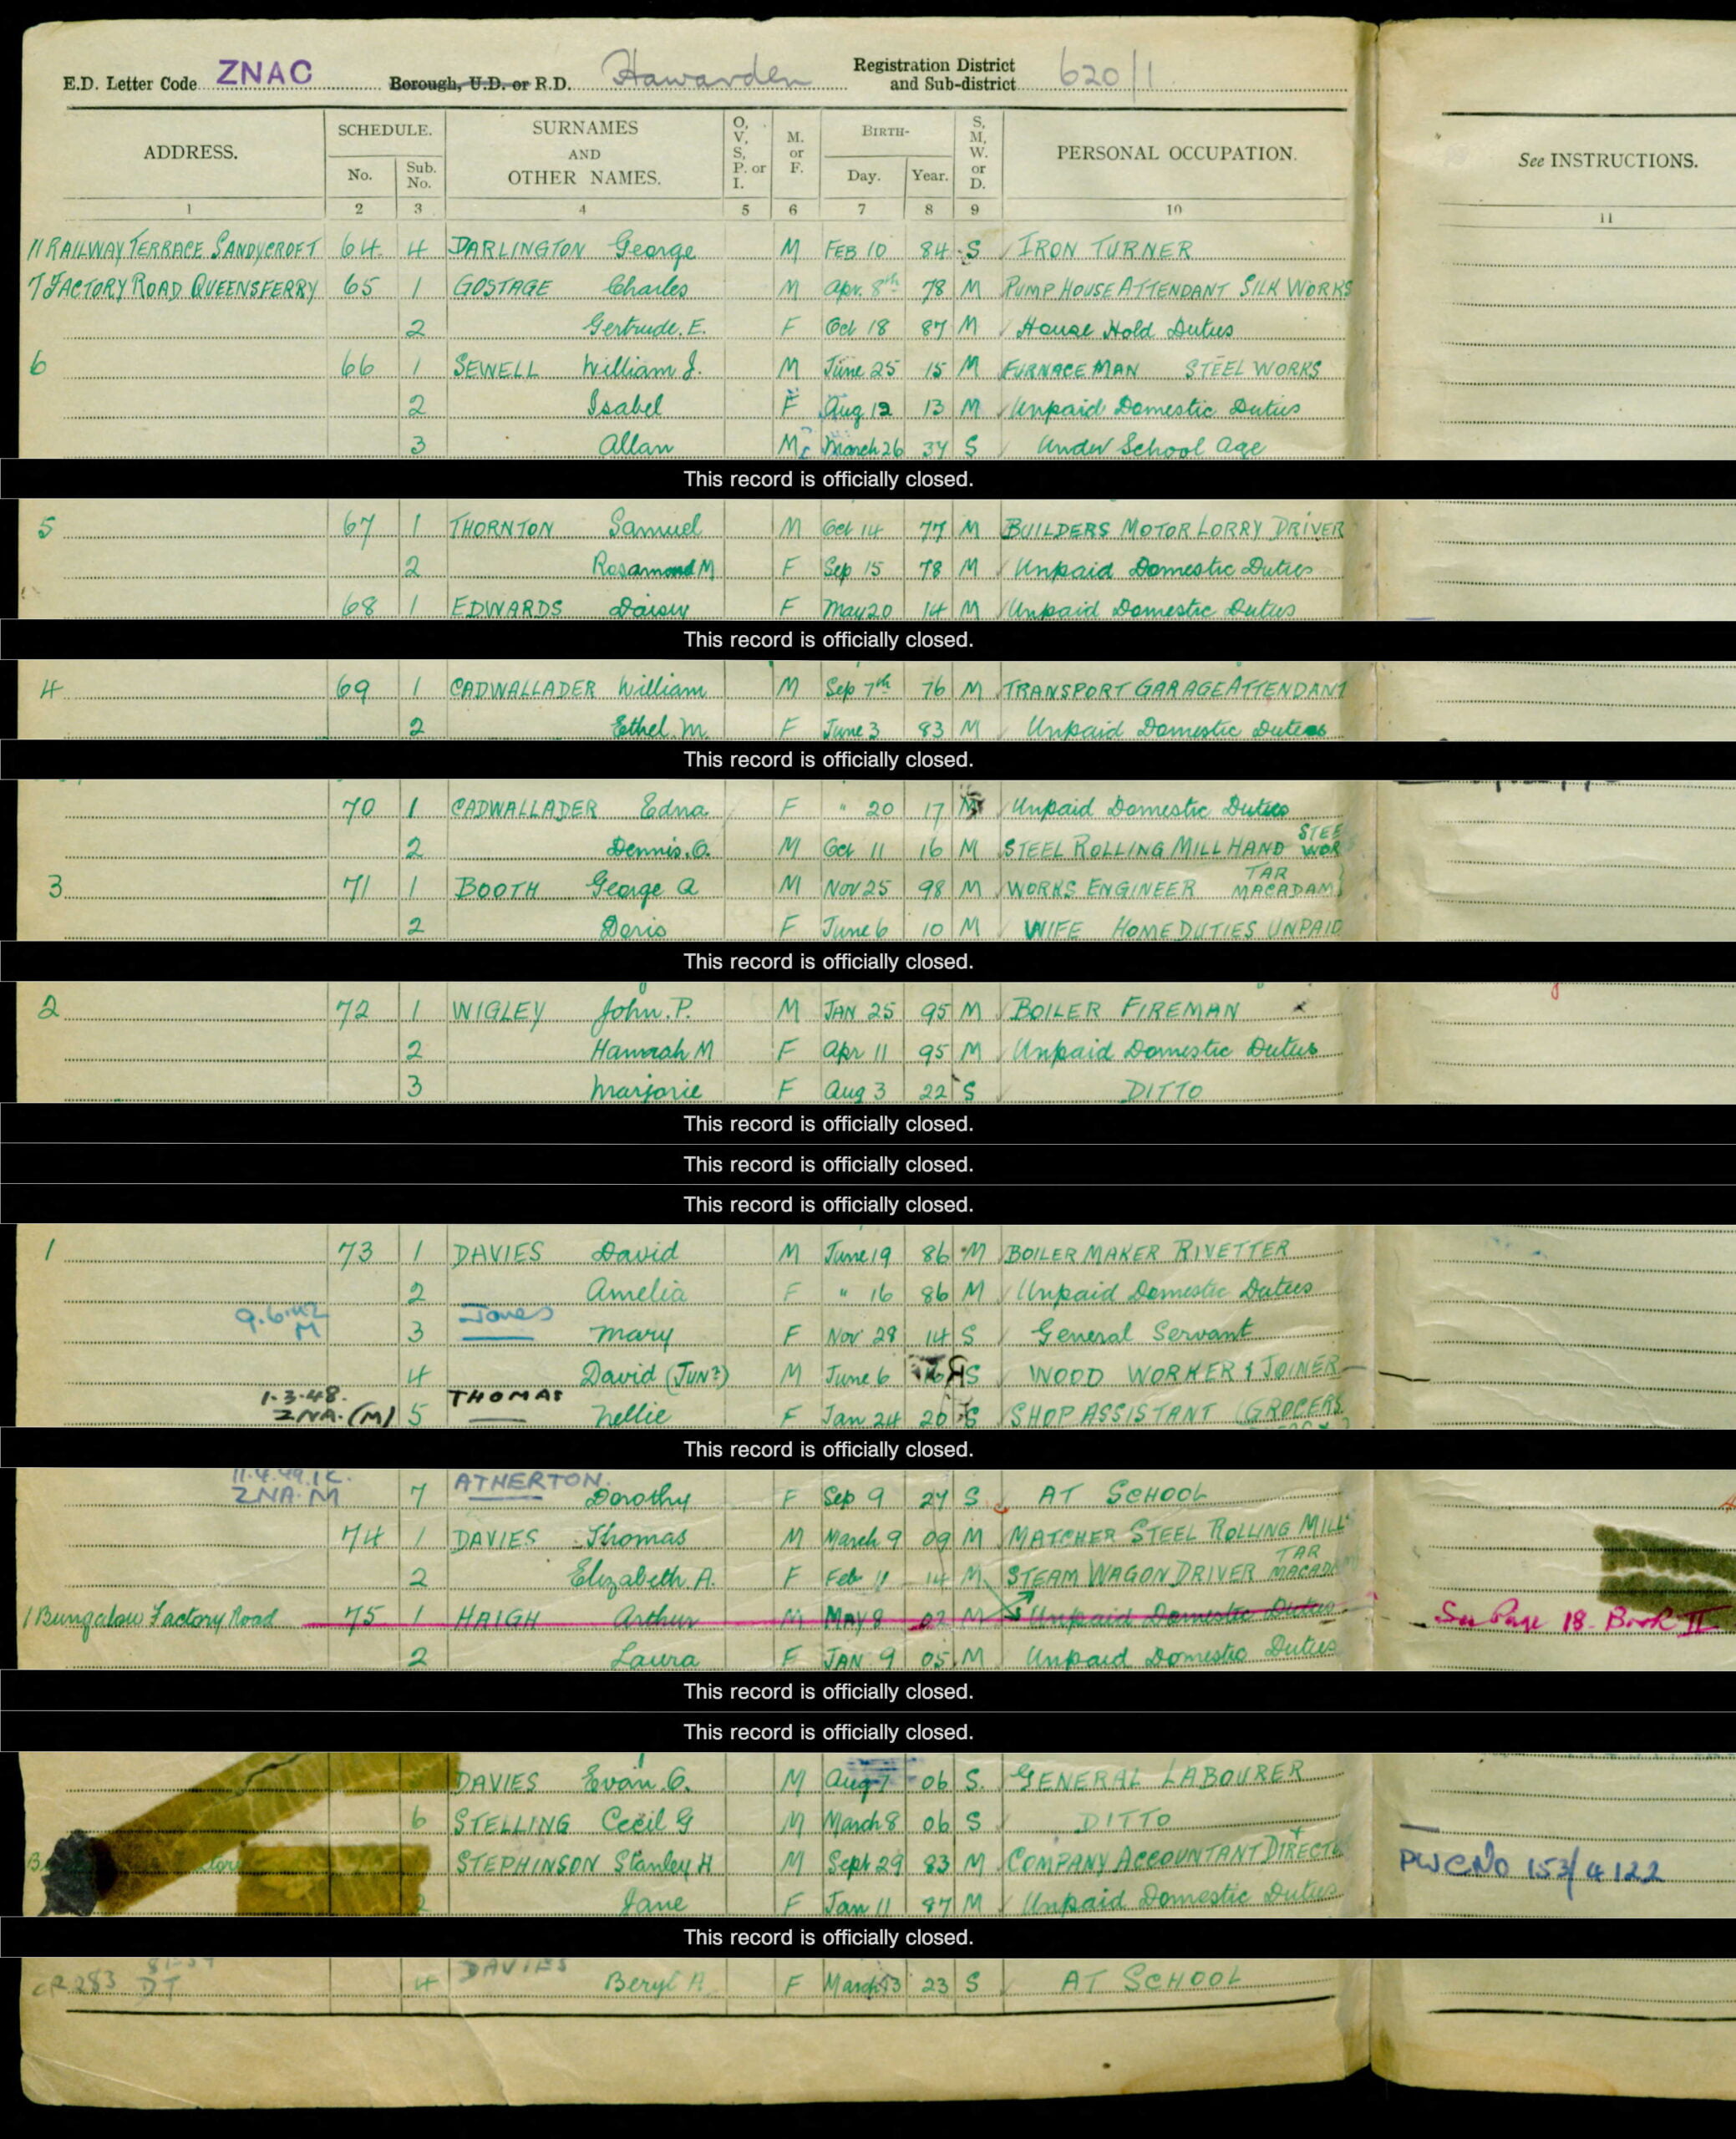 E.D. Letter Code ZNAC Borough, U.D. or R.D. Hawarden Registration District and Sub-district 620/1
ADDRESS. SCHEDULE. No. Sub. No. SURNAMES AND OTHER NAMES. O, V, S, P. or I. M. or F. BIRTH- Day. Year. S, M, W. or D. PERSONAL OCCUPATION. See INSTRUCTIONS.
1 2 3 4 5 6 7 8 9 10 11
11 RAILWAY TERRACE SANDYCROFT 64 4 DARLINGTON George M FEB 10 84 S IRON TURNER
7 FACTORY ROAD QUEENSFERRY 65 1 GOSTAGE Charles M Apr. 8th 78 M PUMP HOUSE ATTENDANT SILK WORKS
2 Gertrude. E. F Oct 18 87 M House Hold Duties
6 66 1 SEWELL William J. M June 25 15 M FURNACE MAN STEEL WORKS
2 Isabel F Aug 12 13 M Unpaid Domestic Duties
3 Allan M March 26 37 S Under School Age
This record is officially closed.
5 67 1 THORNTON Samuel M Oct 14 77 M BUILDERS MOTOR LORRY DRIVER
2 Rosamond M F Sep 15 78 M Unpaid Domestic Duties
68 1 EDWARDS Daisy F May 20 14 M Unpaid Domestic Duties
This record is officially closed.
4 69 1 CADWALLADER William M Sep 7th 76 M TRANSPORT GARAGE ATTENDANT
2 Ethel. M. F June 3 83 M Unpaid Domestic Duties
This record is officially closed.
70 1 CADWALLADER Edna F " 20 17 M Unpaid Domestic Duties
2 Dennis. O. M Oct 11 16 M STEEL ROLLING MILL HAND STEE WOR
3 71 1 BOOTH George A M NOV 25 98 M WORKS ENGINEER TAR MACADAM
2 Doris F June 6 10 M WIFE HOME DUTIES UNPAID
This record is officially closed.
2 72 1 WIGLEY John. P. M JAN 25 95 M BOILER FIREMAN
2 Hannah M F Apr 11 95 M Unpaid Domestic Duties
3 Marjorie F Aug 3 22 S DITTO
This record is officially closed.
This record is officially closed.
This record is officially closed.
1 73 1 DAVIES David M June 19 86 M BOILER MAKER RIVETTER
2 Amelia F " 16 86 M Unpaid Domestic Duties
9.6.42 M 3 Jones Mary F Nov 28 14 S General Servant
4 David (JUNR) M June 6 S WOOD WORKER & JOINER
1.3.48. ZNA. (M) 5 THOMAS Nellie F Jan 24 20 S SHOP ASSISTANT (GROCERS
This record is officially closed.
ZNA. M 7 ATHERTON. Dorothy F Sep 9 27 S AT SCHOOL
74 1 DAVIES Thomas M March 9 09 M MATCHER STEEL ROLLING MILLS
2 Elizabeth A. F Feb 11 14 M STEAM WAGON DRIVER TAR MACADAM
1 Bungalow Factory Road 75 1 HAIGH Arthur M MAY 8 02 M Unpaid Domestic Duties See Page 18. Book II
2 Laura F JAN 9 05 M Unpaid Domestic Duties
This record is officially closed.
This record is officially closed.
DAVIES Evan. O. M Aug 7 06 S. GENERAL LABOURER
6 STELLING Cecil G M March 8 06 S DITTO
STEPHINSON Stanley H M Sept 29 83 M COMPANY ACCOUNTANT + DIRECTO PWC No 153/4122
2 Jane F Jan 11 87 M Unpaid Domestic Duties
This record is officially closed.
CR 283 DT 4 DAVIES Beryl A. F March 23 S AT SCHOOL